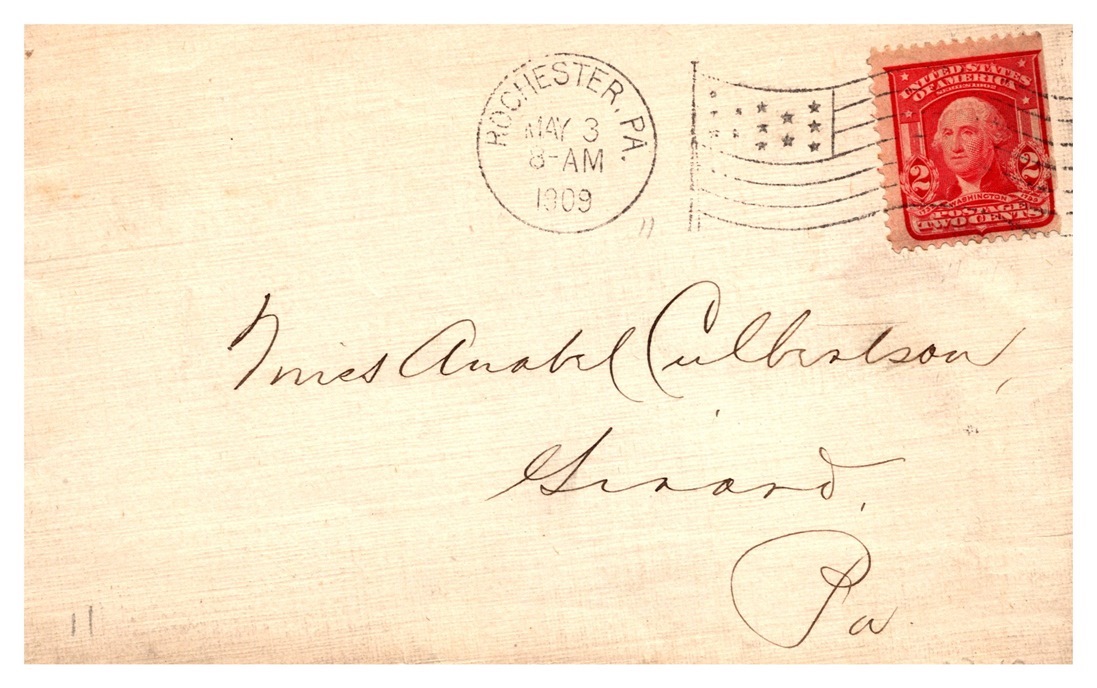 ROCHESTER, PA.
MAY 3
8-AM
1909
UNITED STATES
OF AMERICA
SERIES 1902
2 2
WASHINGTON
POSTAGE
TWO CENTS
Miss Anabel Culbertson,
Girard,
Pa.
11